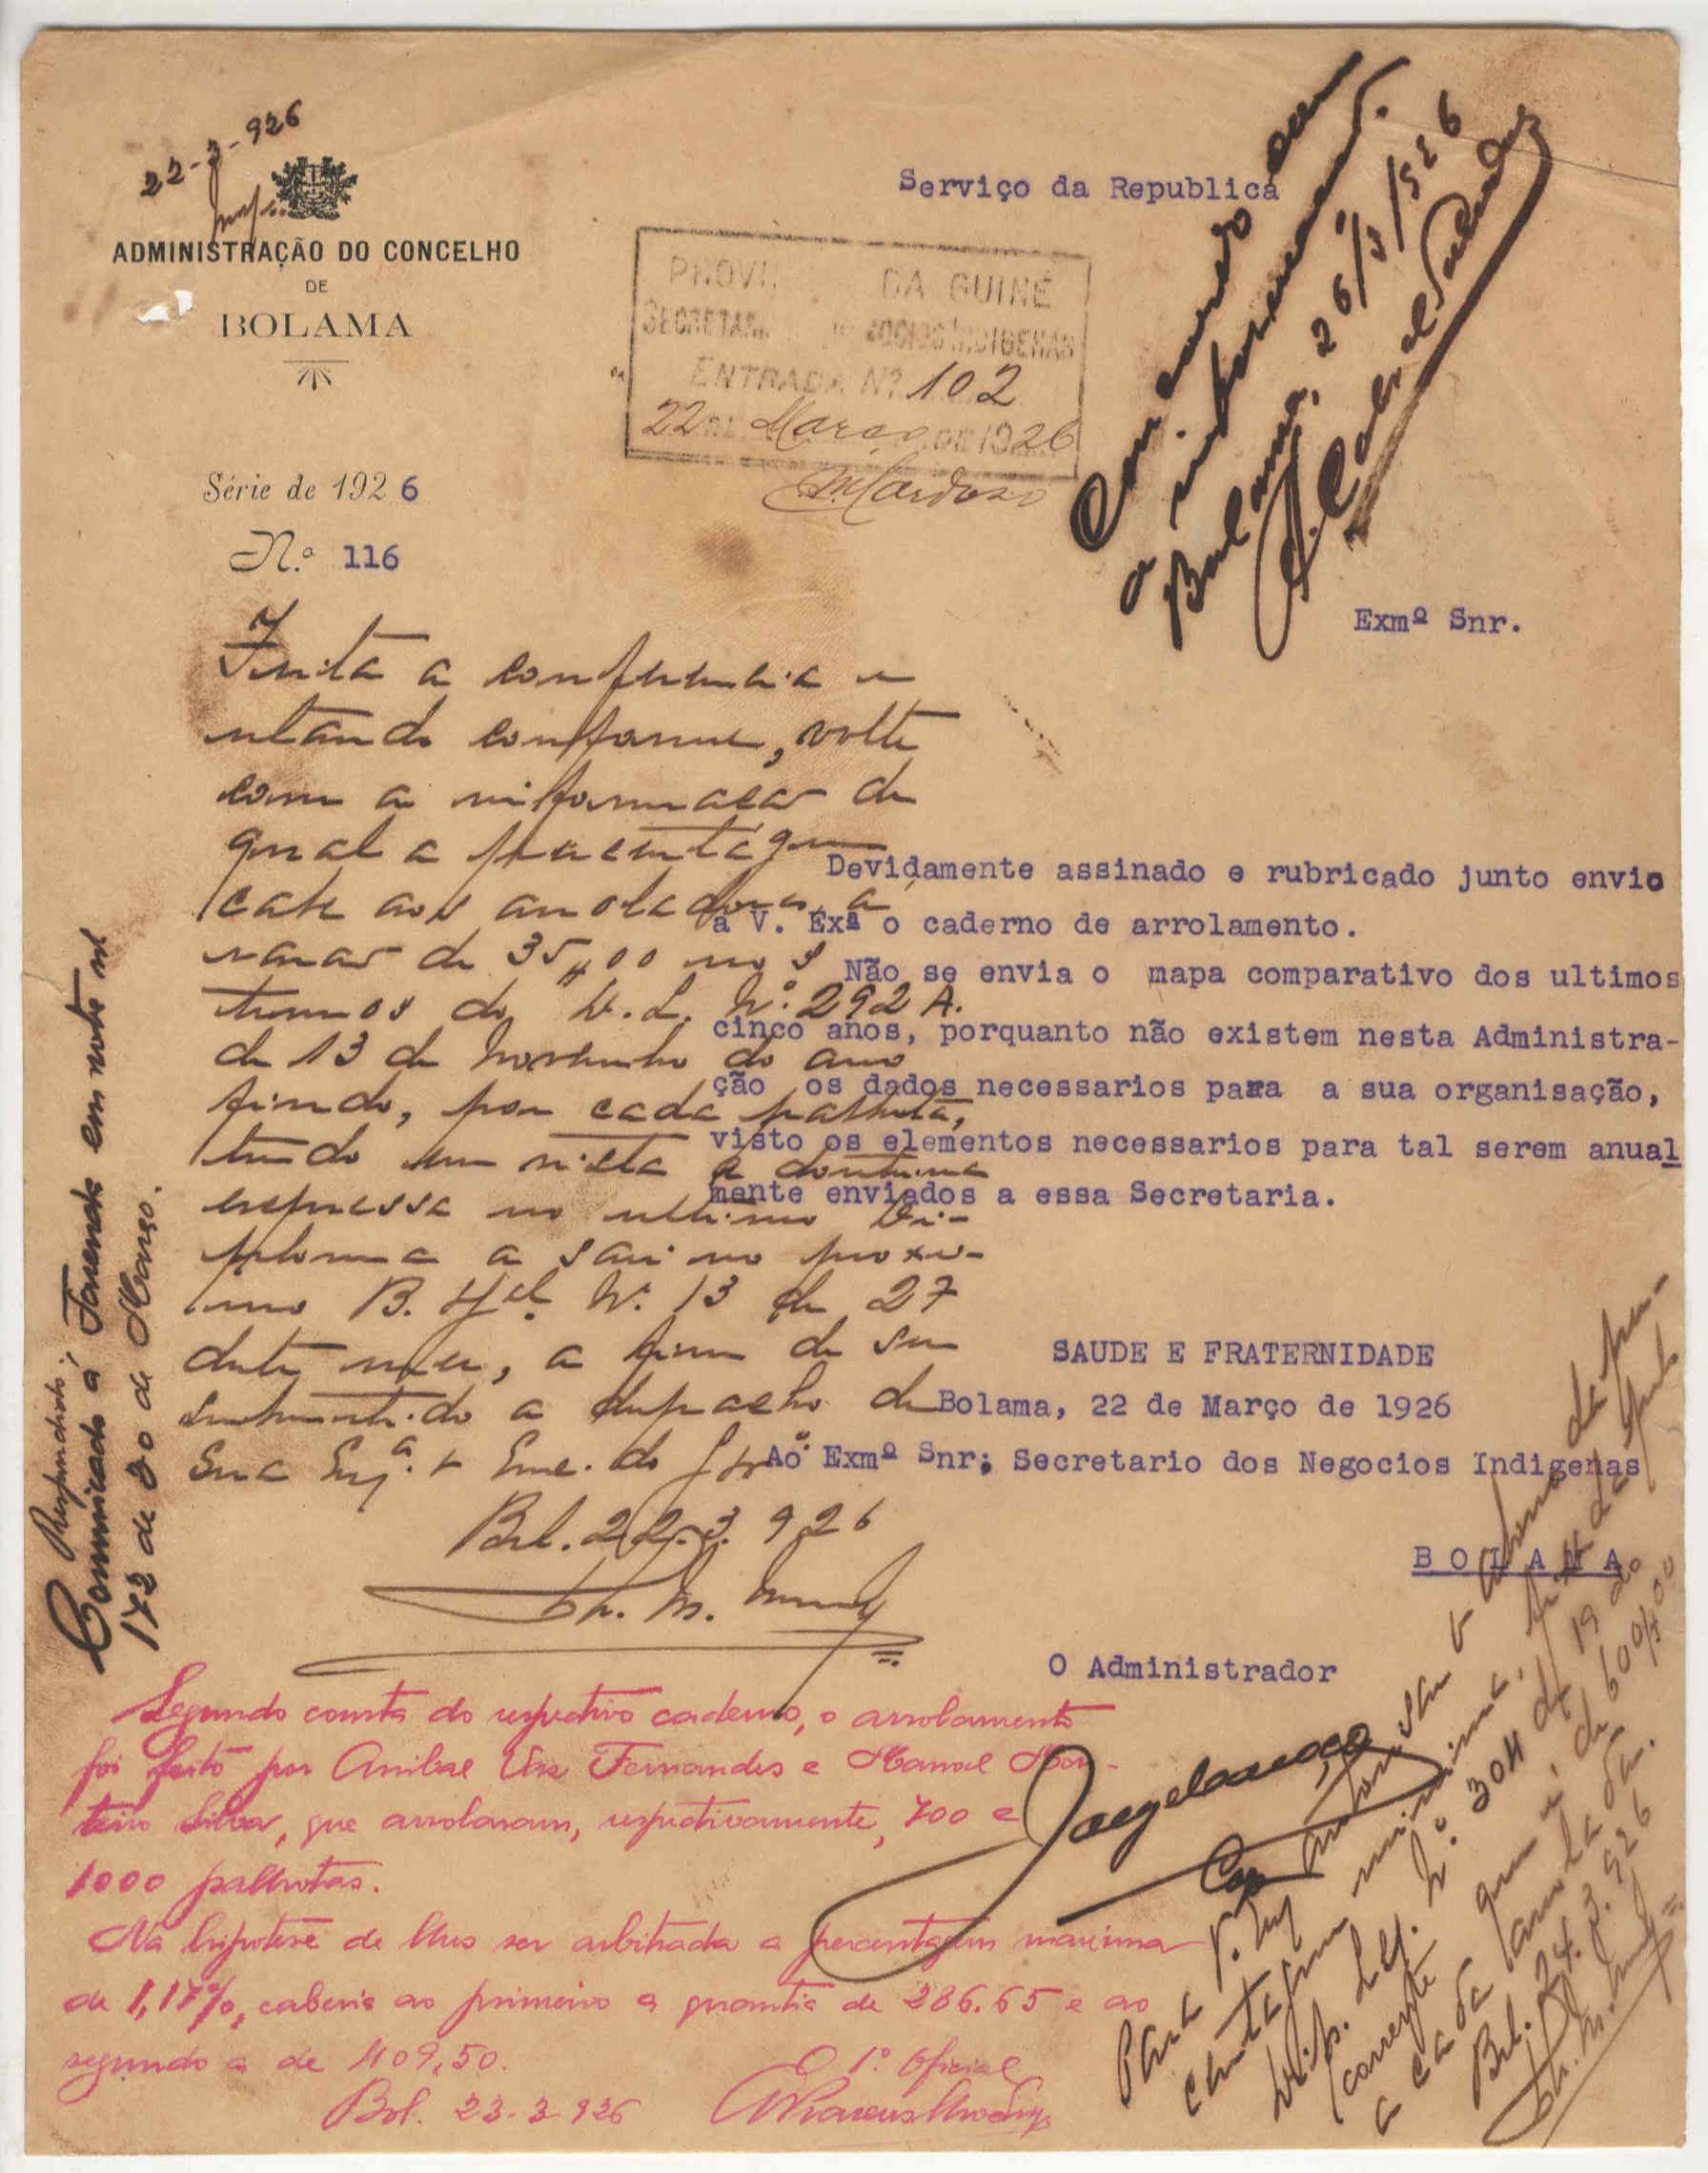 22-3-926
ADMINISTRAÇÃO DO CONCELHO
DE
BOLAMA
Série de 1926
N.º 116
Serviço da Republica
PROVI DA GUINÉ
SECRETAR INDIGENAS
ENTRADA Nº 102
22 DE Março DE 1926
M Cardoso
Concordo com
a informação.
Bolama, 26/3/926
Exmº Snr.
Devidamente assinado e rubricado junto envio
a V. Exª o caderno de arrolamento.
Não se envia o mapa comparativo dos ultimos
cinco anos, porquanto não existem nesta Administra-
ção os dados necessarios para a sua organisação,
visto os elementos necessarios para tal serem anual
mente enviados a essa Secretaria.
SAUDE E FRATERNIDADE
Bolama, 22 de Março de 1926
Ao Exmº Snr; Secretario dos Negocios Indigenas
BOLAMA
O Administrador
Feita a conferencia e
estando conforme, volte
com a informação de
qual a percentagem
cabe aos arroladores, a
razão de 35,00 nos
termos do D. L. Nº 292 A.
de 13 de Novembro do ano
findo, por cada palhota,
tendo em vista a doutrina
expressa no ultimo Di-
ploma a sair no proxi-
mo B. Of.al Nº 13 de 27
deste mez, a fim de ser
submetido a despacho de
Sua Exª. o Enc. do
Bol. 22.3.926
Respondido:
Comunicado á Fazenda em nota nº
172 de 30 de Março.
Segundo consta do respectivo caderno, o arrolamento
foi feito por Anibal Vaz Fernandes e Manoel Mon-
teiro Silva, que arrolaram, respectivamente, 700 e
1000 palhotas.
Na hipotese de lhes ser arbitrada a percentagem maxima
de 1,17%, caberia ao primeiro a quantia de 286.65 e ao
segundo a de 409,50.
Bol. 23-3-926
O 1º Oficial
Para V. Ex autorisar o abono da per-
centagem minima,
Dip. Leg. Nº 304 de 19 do
corrente que é de 600,00
a cada
Bol. 24.3.926